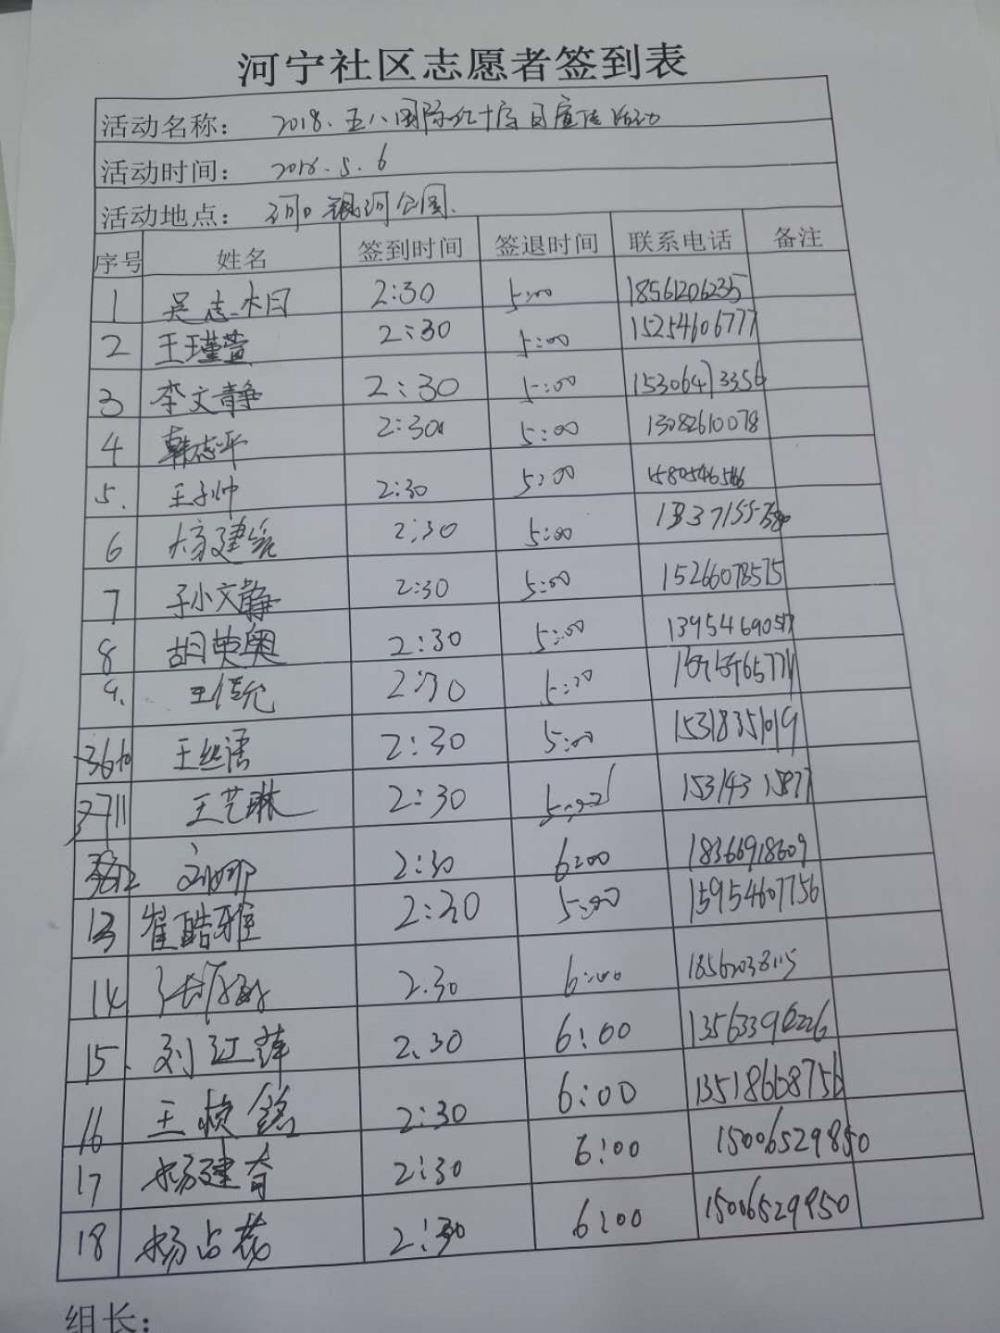 河宁社区志愿者签到表
活动名称： 2018.五八国际红十字日宣传活动
活动时间： 2018.5.6
活动地点： 河口银河公园.
序号 姓名 签到时间 签退时间 联系电话 备注
1 吴志 2:30 5:00 18561206235
2 王瑾萱 2:30 5:00 15254606777
3 李文静 2:30 5:00 15306473356
4 韩志平 2:30 5:00 13082610078
5. 王子帅 2:30 5:00
6 建 2:30 5:00
7 孙文静 2:30 5:00 15266078575
8 胡英奥 2:30 5:00
9. 王 2:30 5:00
10 王丝语 2:30 5:00 15318351019
11 王艺琳 2:30
12 2:30 6:00 18366918609
13 崔酷雅 2:30 5:00 15954607756
14 2:30 6:00
15. 刘江萍 2.30 6:00 13563396226
16 王桢铭 2:30 6:00 13518668756
17 杨建奇 2:30 6:00 15006529850
18 杨占花 2:30 6:00 15006529950
组长：